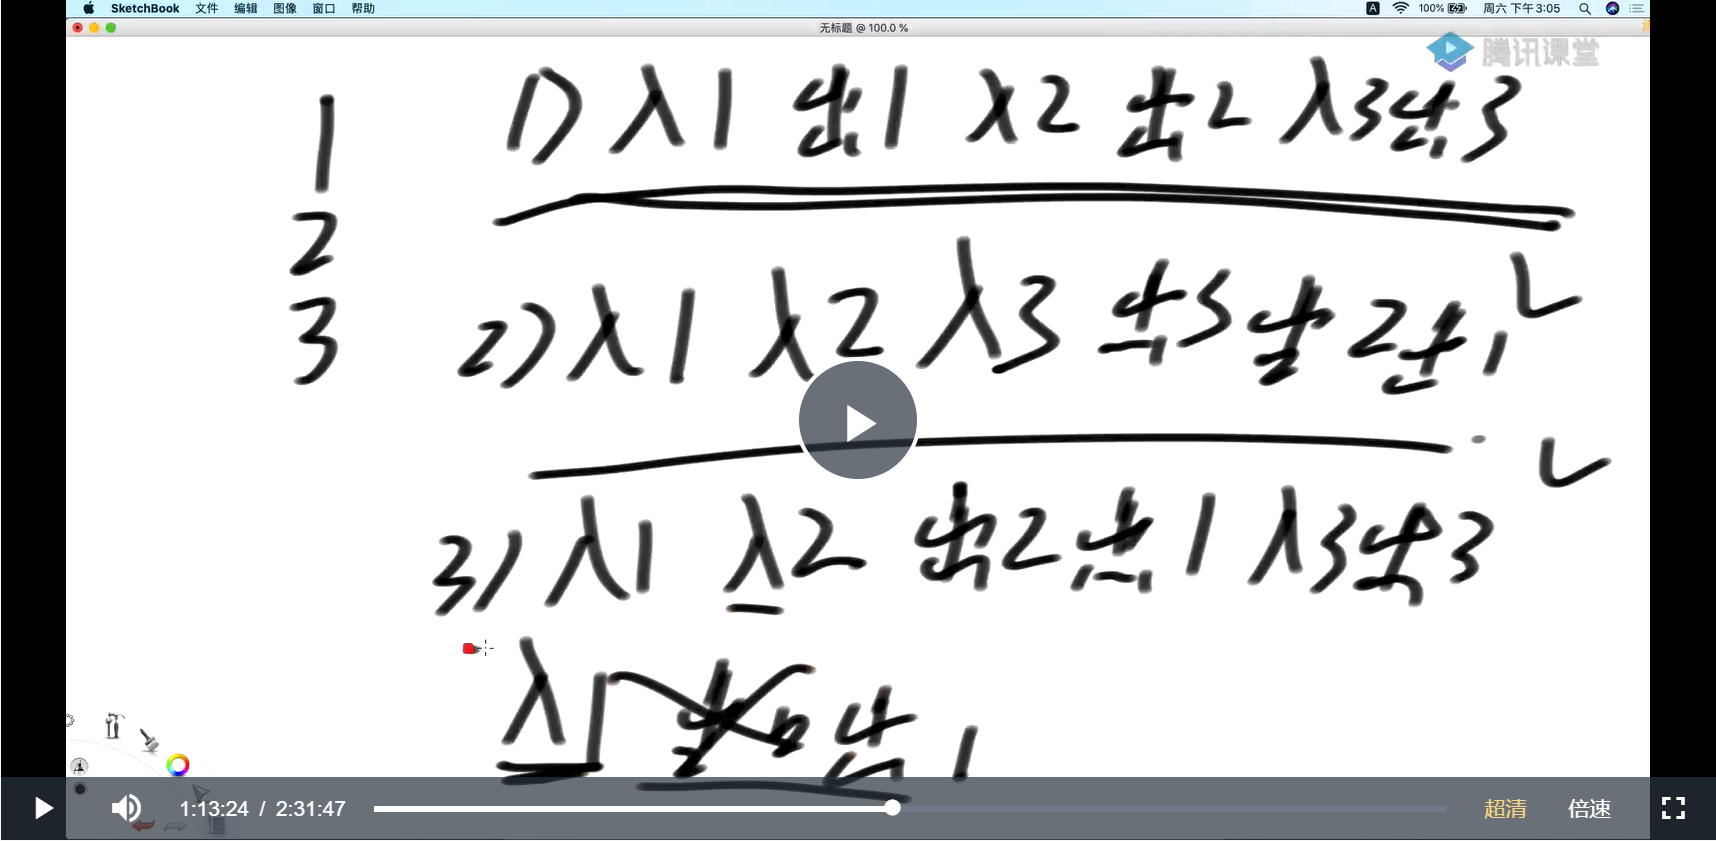 SketchBook 文件 编辑 图像 窗口 帮助 100% 周六 下午3:05
无标题 @ 100.0 %
腾讯课堂
1
2
3
1) 入1 出1 入2 出2 入3 出3
2) 入1 入2 入3 出3 出2 出1
3) 入1 入2 出2 出1 入3 出3
入1 出1
1:13:24 / 2:31:47 超清 倍速